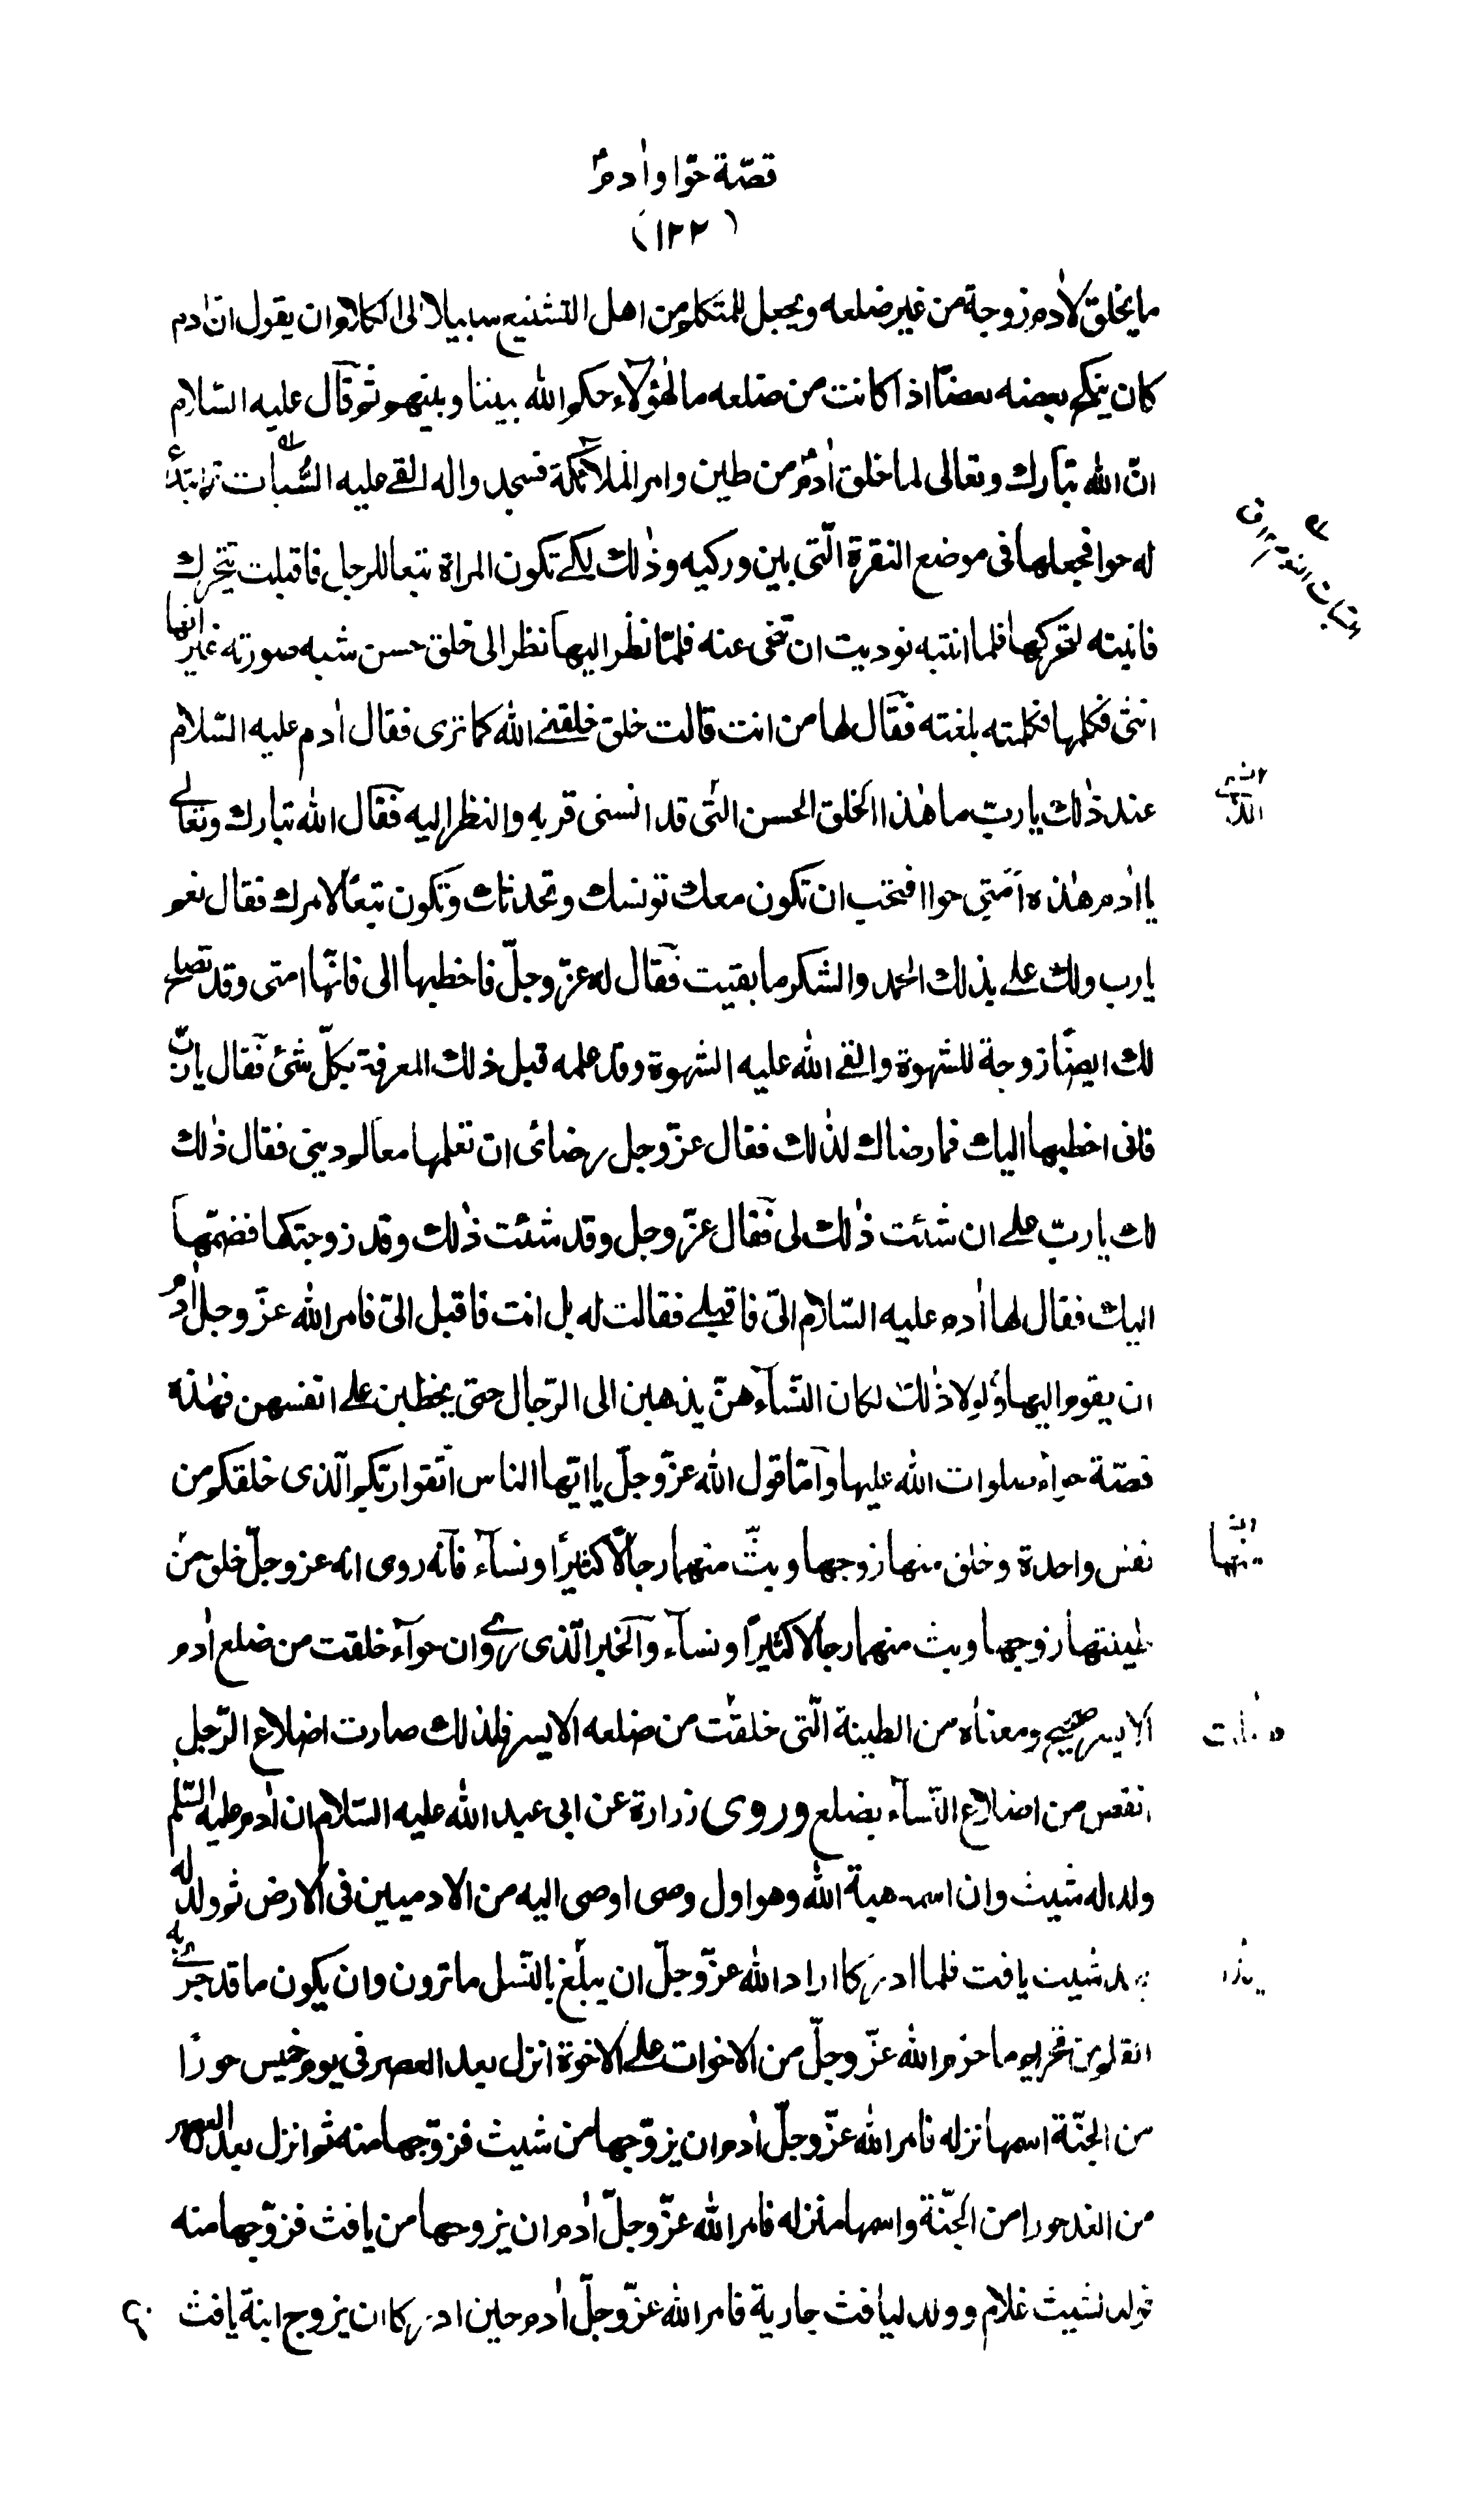 قصّة حوّا واٰدمؑ
(١٢٢)
ما يخلق لاٰدم زوجة من غير ضلعه ويجعل للمتكلم من اهل التشنيع سبيلا الى الكلام ان يقول ان اٰدم
كان ينكح بعضه بعضًا اذا كانت من ضلعه ما لهٰؤلآء حكم الله بيننا وبينهم ثم قال عليه السّلام
انّ الله تبارك وتعالى لما خلق اٰدمؑ من طين وامر الملآئكة فسجدوا له القى عليه السُّبات ثم ابتدع
له حوا فجعلها فى موضع النقرة الّتى بين وركيه وذٰلك لكى تكون المراة تبعا للرجل فاقبلت تتحرك
فانتبه لتحركها فلما انتبه نوديت ان تنحى عنه فلمّا نظر اليها نظر الى خلق حسن شبه صورته غير انها
انثى فكلمها فكلمته بلغته فقال لها من انت قالت خلق خلقنى الله كما ترى فقال اٰدم عليه السّلام
عند ذٰلك يا ربّ ما هٰذا الخلق الحسن الّتى قد انسنى قربه والنظر اليه فقال الله تبارك وتعالى
يا اٰدم هٰذه اَمَتِى حوا افتحب ان تكون معك تونسك وتحدثك وتكون تبعًا لامرك فقال نعم
يا رب ولك على بذلك الحمد والشكر ما بقيت فقال له عزّ وجلّ فاخطبها الى فانّها امتى وقد تصلح
لك ايضًا زوجة للشهوة والقى الله عليه الشهوة وقد علمه قبل ذلك المعرفة بكلّ شئ فقال يا ربّ
فانى اخطبها اليك فما رضاك لذٰلك فقال عزّ وجل رضائى ان تعلمها معالم دينى فقال ذٰلك
لك يا ربّ على ان شئت ذٰلك لى فقال عزّ وجل وقد شئت ذٰلك وقد زوجتكها فضمّها
اليك فقال لها اٰدم عليه السّلام الىّ فاقبلى فقالت له بل انت فاقبل الىّ فامر الله عزّ وجل اٰدمؑ
ان يقوم اليها ولولا ذٰلك لكان النّسآء هنّ يذهبن الى الرّجال حتى يخطبن على انفسهن فهٰذه
قصّة حوآء صلوات الله عليها وامّا قول الله عزّ وجلّ يا ايّها الناس اتّقوا ربّكم الّذى خلقكم من
نفس واحدة وخلق منها زوجها وبثّ منهما رجالًا كثيرًا ونسآء فانّه روى انه عز وجلّ خلق من
طينتها زوجها وبث منهما رجالا كثيرًا ونسآء والخبر الّذى روى ان حوآء خلقت من ضلع اٰدم
الايسر صحيح ومعناه من الطينة الّتى خلقت من ضلعه الايسر فلذلك صارت اضلاع الرّجل
انقص من اضلاع النّسآء بضلع وروى زرارة عن ابى عبد الله عليه السّلام ان اٰدم عليه السّلم
ولد له شيث وان اسمه هبة الله وهو اول وصى اوصى اليه من الادميين فى الارض ثم ولد له
بعد شيث يافث فلما ادركا اراد الله عزّ وجلّ ان يبلّغ بالنّسل ما ترون وان يكون ما قد جرى به
القلم من تحريم ما حرم الله عزّ وجلّ من الاخوات على الاخوة انزل بعد العصر فى يوم خميس حورًا
من الجنّة اسمها نزله فامر الله عزّ وجلّ اٰدم ان يزوّجها من شيث فزوّجها منه ثم انزل بعد العصر
من الغد حورا من الجنّة واسمها منزله فامر الله عزّ وجلّ اٰدم ان يزوجها من يافث فزوّجها منه
فولد لشيث غلام وولد ليافث جارية فامر الله عزّ وجلّ اٰدم حين ادركا ان يزوج ابنة يافث